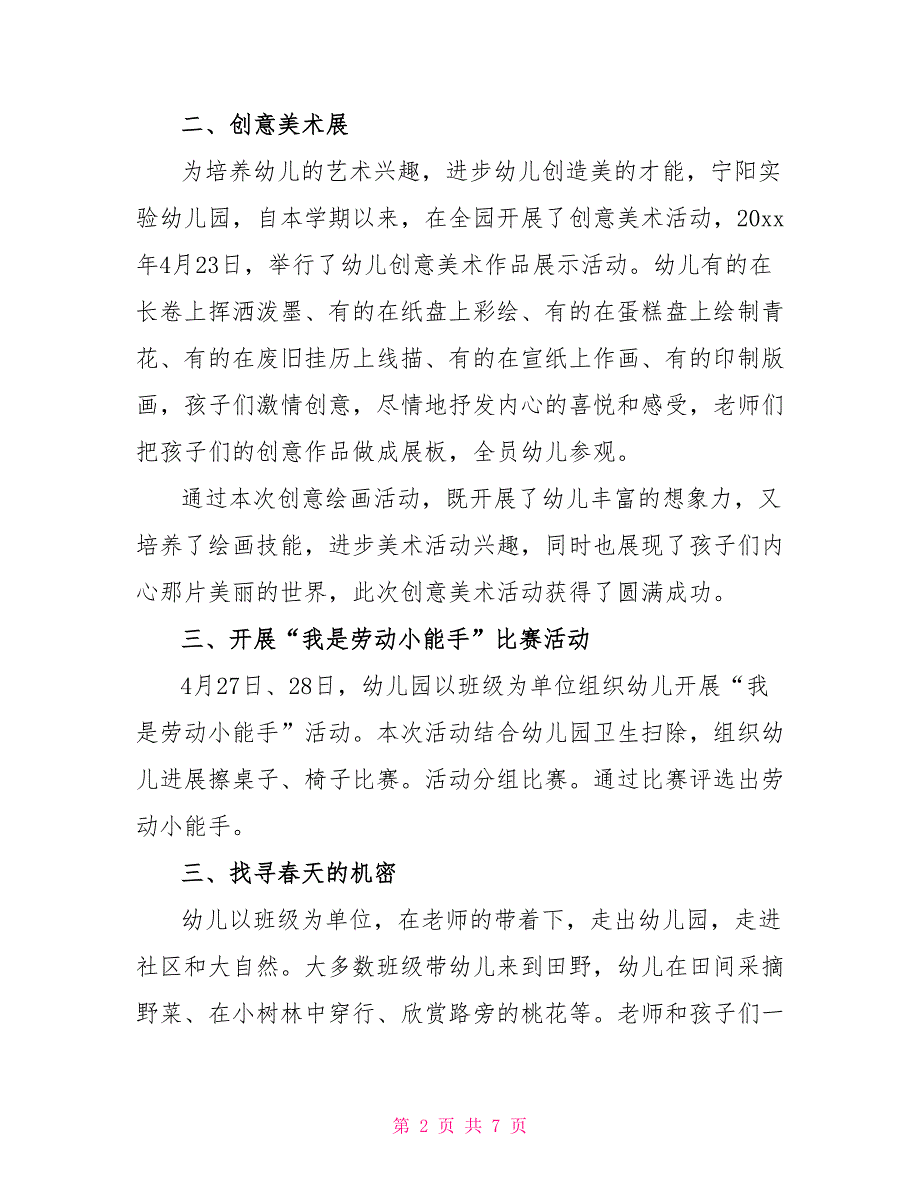 二、创意美术展
为培养幼儿的艺术兴趣，进步幼儿创造美的才能，宁阳实
验幼儿园，自本学期以来，在全园开展了创意美术活动，20xx
年4月23日，举行了幼儿创意美术作品展示活动。幼儿有的在
长卷上挥洒泼墨、有的在纸盘上彩绘、有的在蛋糕盘上绘制青
花、有的在废旧挂历上线描、有的在宣纸上作画、有的印制版
画，孩子们激情创意，尽情地抒发内心的喜悦和感受，老师们
把孩子们的创意作品做成展板，全员幼儿参观。
通过本次创意绘画活动，既开展了幼儿丰富的想象力，又
培养了绘画技能，进步美术活动兴趣，同时也展现了孩子们内
心那片美丽的世界，此次创意美术活动获得了圆满成功。
三、开展“我是劳动小能手”比赛活动
4月27日、28日，幼儿园以班级为单位组织幼儿开展“我
是劳动小能手”活动。本次活动结合幼儿园卫生扫除，组织幼
儿进展擦桌子、椅子比赛。活动分组比赛。通过比赛评选出劳
动小能手。
三、找寻春天的机密
幼儿以班级为单位，在老师的带着下，走出幼儿园，走进
社区和大自然。大多数班级带幼儿来到田野，幼儿在田间采摘
野菜、在小树林中穿行、欣赏路旁的桃花等。老师和孩子们一
第 2 页 共 7 页